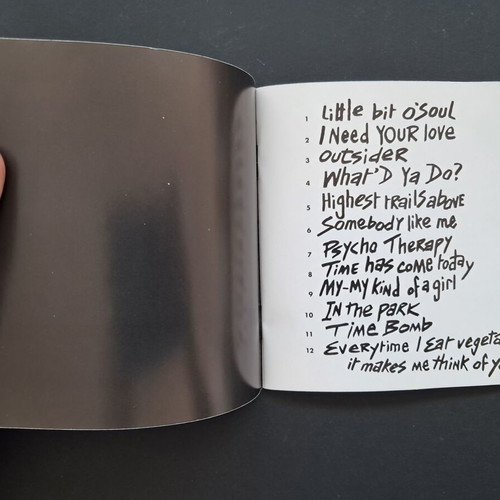 1 Little bit o'Soul
2 I Need YOUR love
3 outsideR
4 What'D Ya Do?
5 Highest tRails above
6 Somebody like me
7 Psycho TheRapy
8 Time has come today
9 MY-MY kind of a girl
10 In the paRK
11 Time Bomb
12 Everytime I Eat vegeta
it makes me think of yo